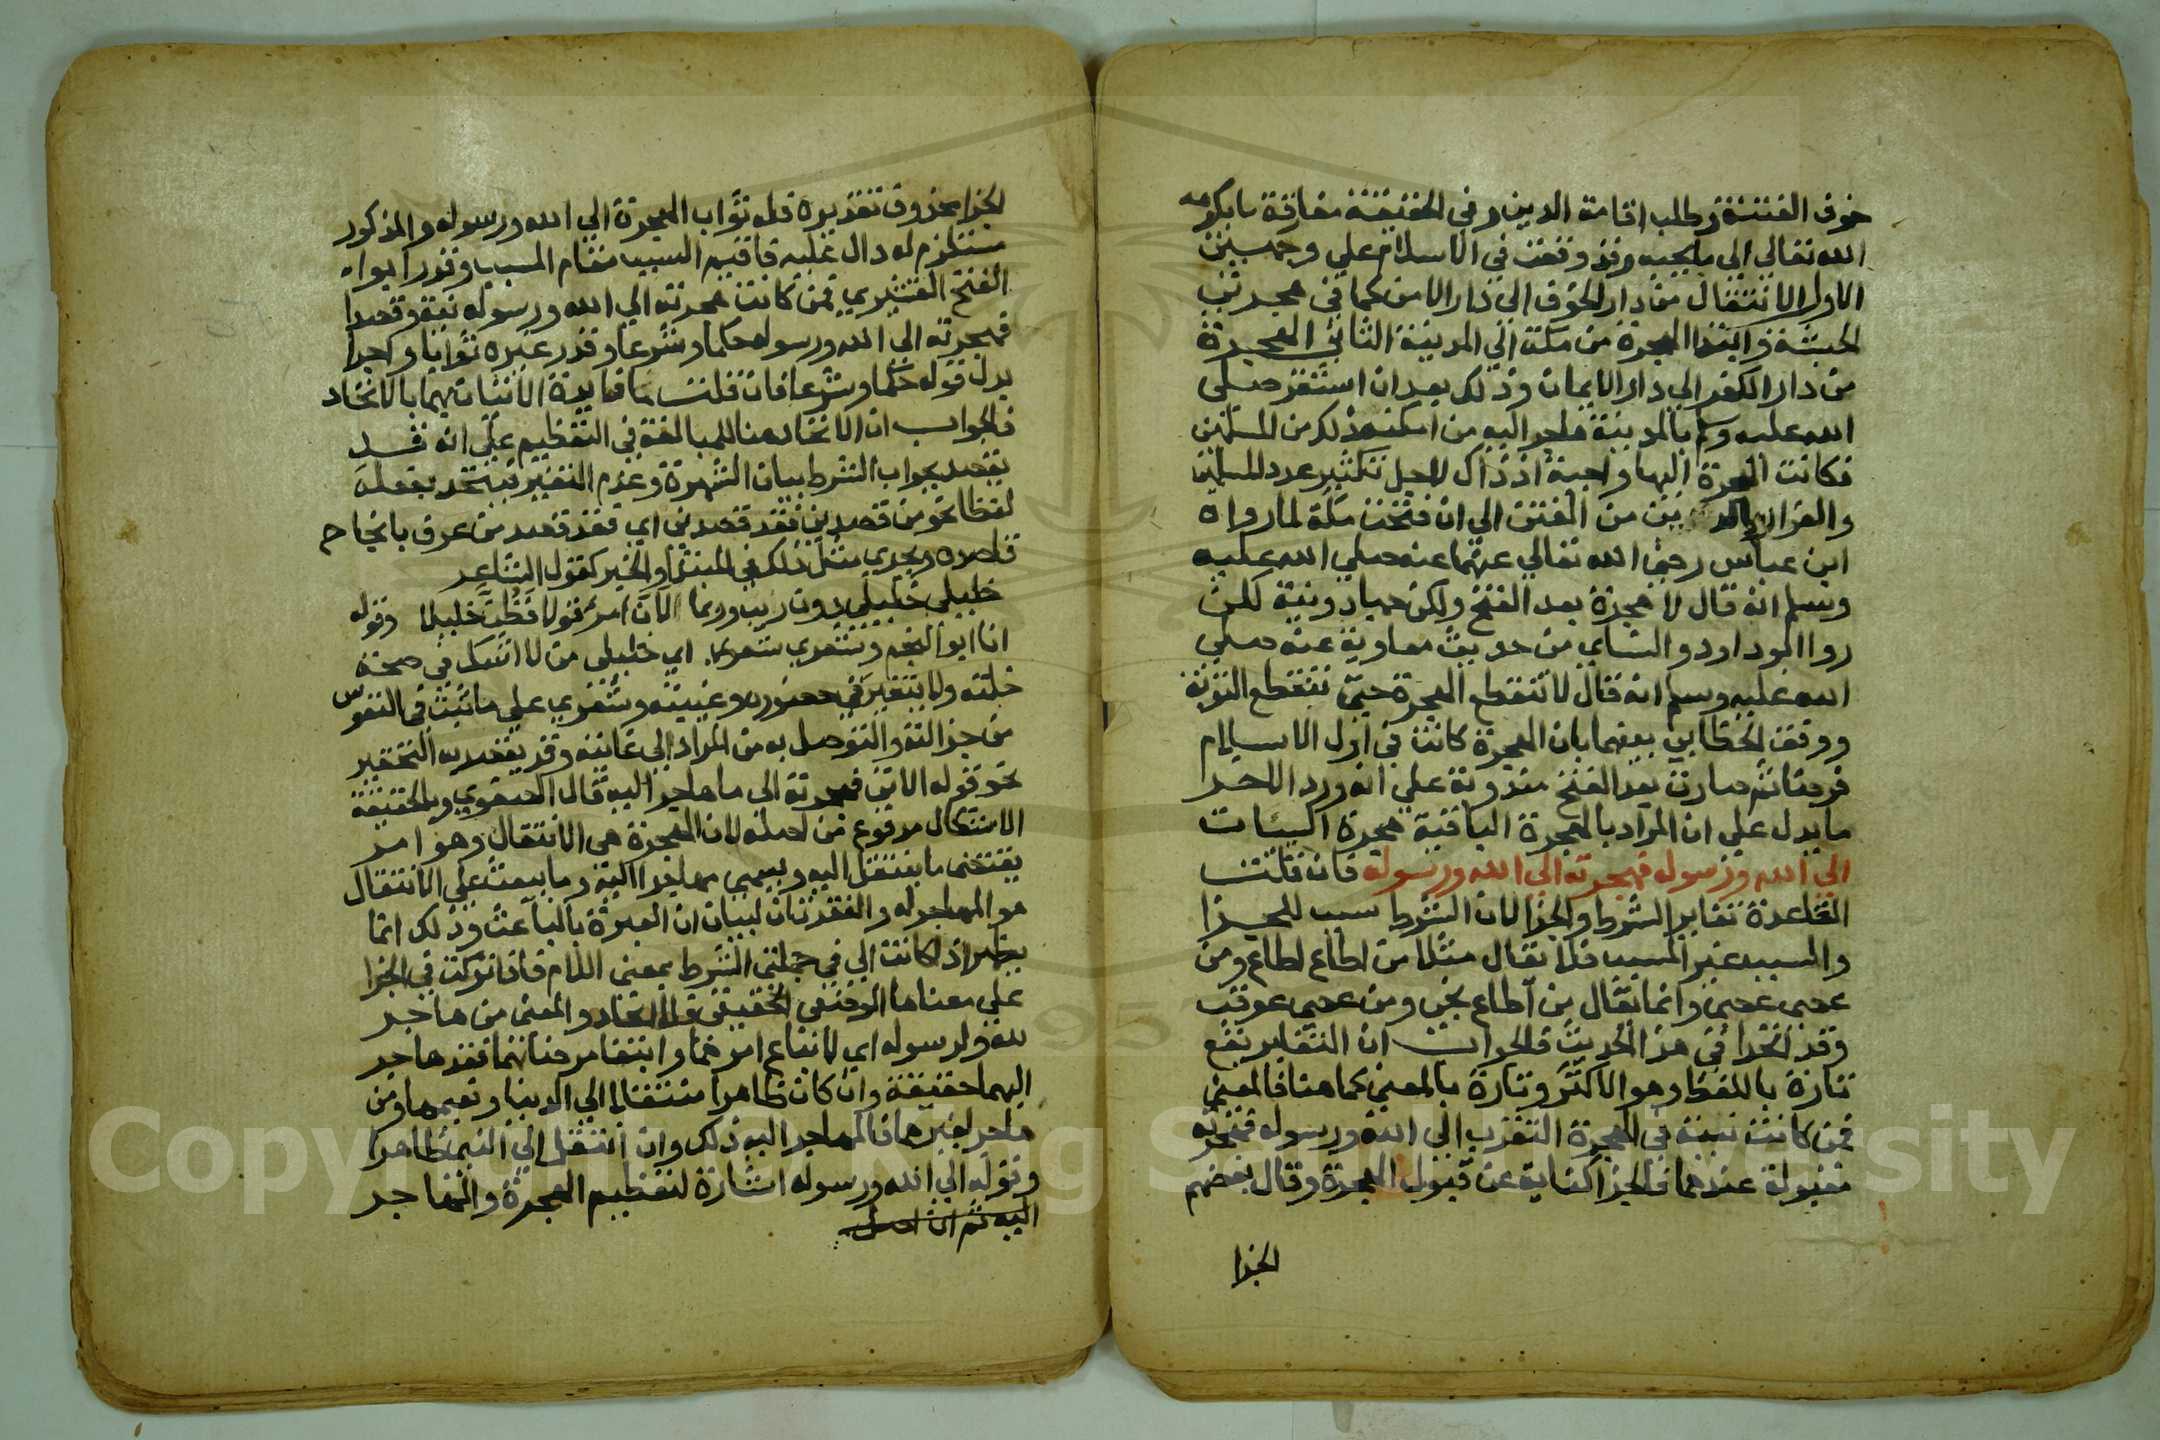 خوف الفتنة وطلب اقامة الدين وفي الحقيقة مفارقة ما يكرهه
الله تعالى الى ما يحبه وقد وقعت في الاسلام علي وجهين
الاول الانتقال من دار الخوف الي دار الامن كما في هجرتي
الحبشة وابتدا الهجرة من مكة الي المدينة الثاني الهجرة
من دار الكفر الي دار الايمان وذلك بعد ان استقر صلى
الله عليه وسلم بالمدينة وهاجر اليه من امكنه ذلك من المسلمين
فكانت الهجرة اليها واجبة اذ ذاك لاجل تكثير عدد المسلمين
والفرار بالدين من الفتن الي ان فتحت مكة لما رواه
ابن عباس رضي الله تعالي عنهما عنه صلي الله عليه
وسلم انه قال لا هجرة بعد الفتح ولكن جهاد ونية لكن
روا ابوداود والنساي من حديث معاوية عنه صلي
الله عليه وسلم انه قال لا تنقطع الهجرة حتي تنقطع التوبة
ووفق الخطابي بينهما بان الهجرة كانت في اول الاسلام
فرضا ثم صارت بعد الفتح مندوبة علي انه ورد لاحمد
ما يدل علي ان المراد بالهجرة الباقية هجرة السيئات
الي الله ورسوله فهجرته الي الله ورسوله فان قلت
القاعدة تغاير الشرط والجزا لان الشرط سبب للجزا
والسبب غير المسبب فلا يقال مثلا من اطاع اطاع ومن
عصي عصي وانما يقال من اطاع نجى ومن عصي عوقب
وقد اتحدا في هذا الحديث فالجواب ان التغاير يقع
تارة باللفظ وهو الاكثر وتارة بالمعني كما هنا فالمعني
فمن كانت نيته في الهجرة التقرب الي الله ورسوله فهجرته
مقبولة عندهما فالجزا كناية عن قبول الهجرة وقال بعضهم
الجزا
الجزا محذوف تقديره فله ثواب الهجرة الي الله ورسوله والمذكور
مستلزم له دال عليه فاقيم السبب مقام المسبب وقدر ابواه
الفتح القشيري فمن كانت هجرته الي الله ورسوله نية وقصدا
فهجرته الى الله ورسوله حكما وشرعا وقدر غيره ثوابا واجرا
بدل قوله حكما وشرعا فان قلت ما فايدة الاتيان بهما بالاتحاد
فالجواب ان الاتحاد هنا للمبالغة في التعظيم علي انه قد
يقصد بجواب الشرط بيان الشهرة وعدم التغير فيتحد بفعله
لفظا نحو من قصدني فقد قصدني اي فقد قصد من عرف بانجاح
قاصده ويجري مثل ذلك في المبتدا والخبر كقول الشاعر
خليلي خليلي دون ريب وربما الان امرء قولا فظن خليلا وقوله
انا ابو النجم وشعري شعري اي خليلي من لا اشك في صحة
خلته ولا يتغير في حضوره وغيبته وشعري علي ما ثبت في النفوس
من جزالته والتوصل به من المراد الي غايته وقد يقصد به التحقير
نحو قوله الاتي فهجرته الى ما هاجر اليه قال الصفوي وبالحقيقة
الاشكال مدفوع من اصله لان الهجرة هي الانتقال وهو امر
يقتضي ما ينتقل اليه ويسمي مهاجرا اليه وما يبعث علي الانتقال
هو المهاجر له والفقرتان لبيان ان العبرة بالباعث وذلك انما
يظهر اذا كانت الي في جملتي الشرط بمعني اللام فاذا تركت في الجزا
علي معناها الوضعي الحقيقي فلا اتحاد والمعني من هاجر
لله ولرسوله اي لاتباع امرهما وابتغا مرضاتهما فقد هاجر
اليهما حقيقة وان كان ظاهرا منتقلا الي الدنيا ونعيمها ومن
هاجر لغيرهما فالمهاجر اليه ذلك وان انتقل الي النبي ظاهرا
وقوله الي الله ورسوله اشارة لتعظيم الهجرة والمهاجر
اليه ثم ان اصل